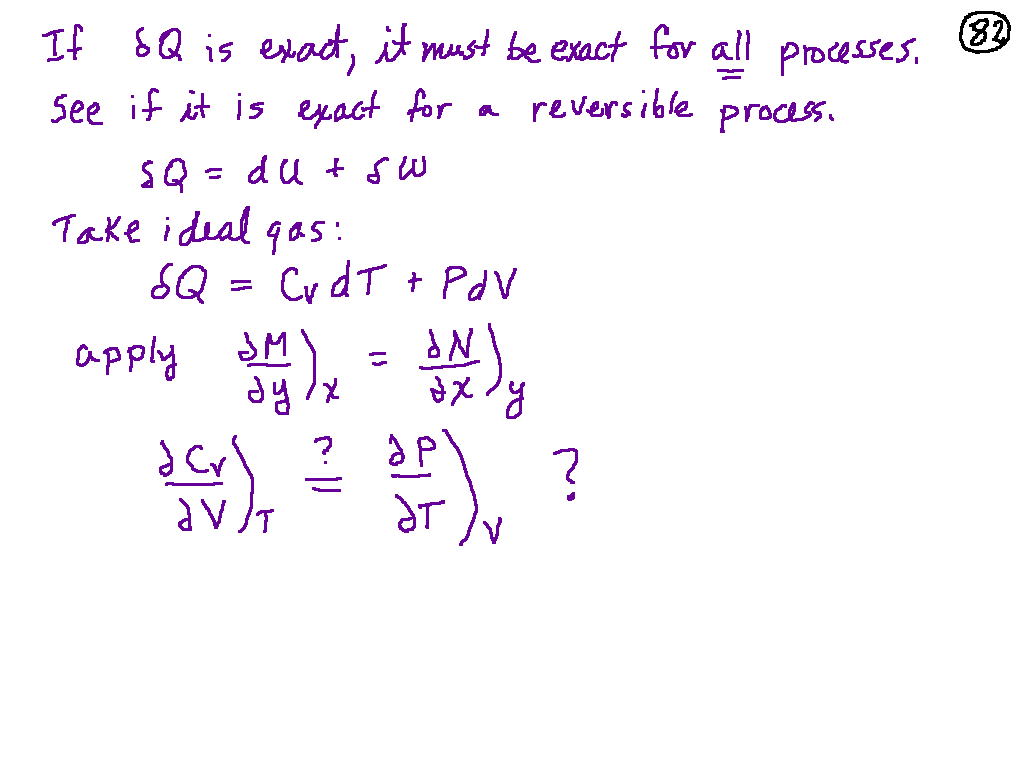 If δQ is exact, it must be exact for all processes. 82
See if it is exact for a reversible process.
δQ = dU + δW
Take ideal gas:
δQ = Cv dT + PdV
apply ∂M/∂y)x = ∂N/∂x)y
∂Cv/∂V)T ?= ∂P/∂T)V ?